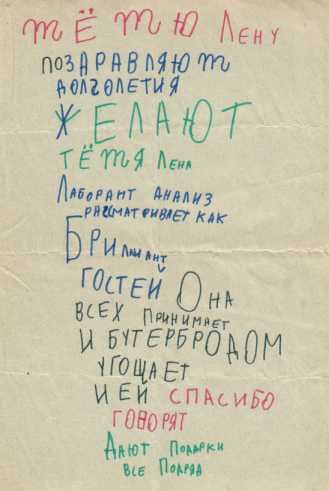 тЁтЮ ЛЕНУ
ПОЗДРАВЛЯЮт
ДОЛГОЛЕТИЯ
ЖЕЛАЮТ
тЁтя ЛЕНА
ЛАБОРАНТ АНАЛИЗ
РАССМАТРИВАЕТ КАК
БРИЛЛИАНТ
ГОСТЕЙ ОНА
ВСЕХ ПРИНИМАЕТ
И БУТЕРБРОДОМ
УГОЩАЕТ
И ЕЙ СПАСИБО
ГОВОРЯТ
ДАЮТ ПОДАРКИ
ВСЕ ПОДРЯД